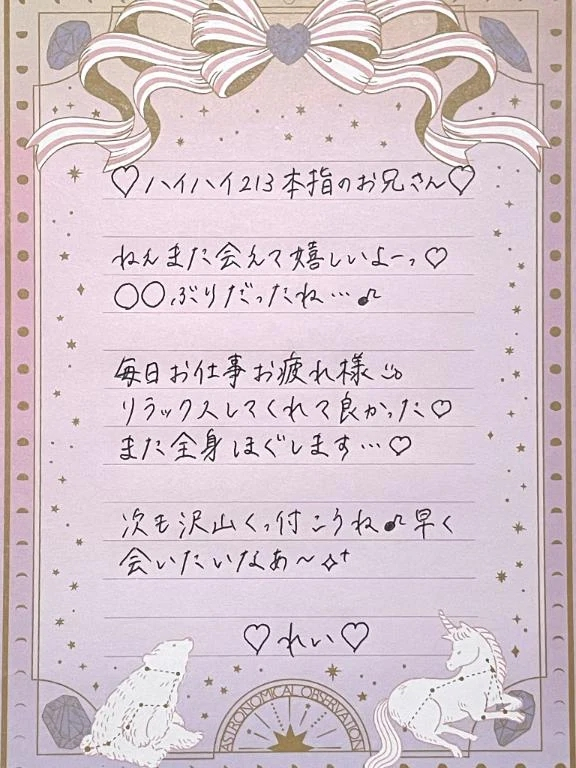 ♡ハイハイ213本指のお兄さん♡
ねえまた会えて嬉しいよーっ♡
○○ぶりだったね…♪
毎日お仕事お疲れ様
リラックスしてくれて良かった♡
また全身ほぐします…♡
次も沢山くっ付こうね♪早く
会いたいなあ〜✧⁺
♡れい♡
ASTRONOMICAL OBSERVATION